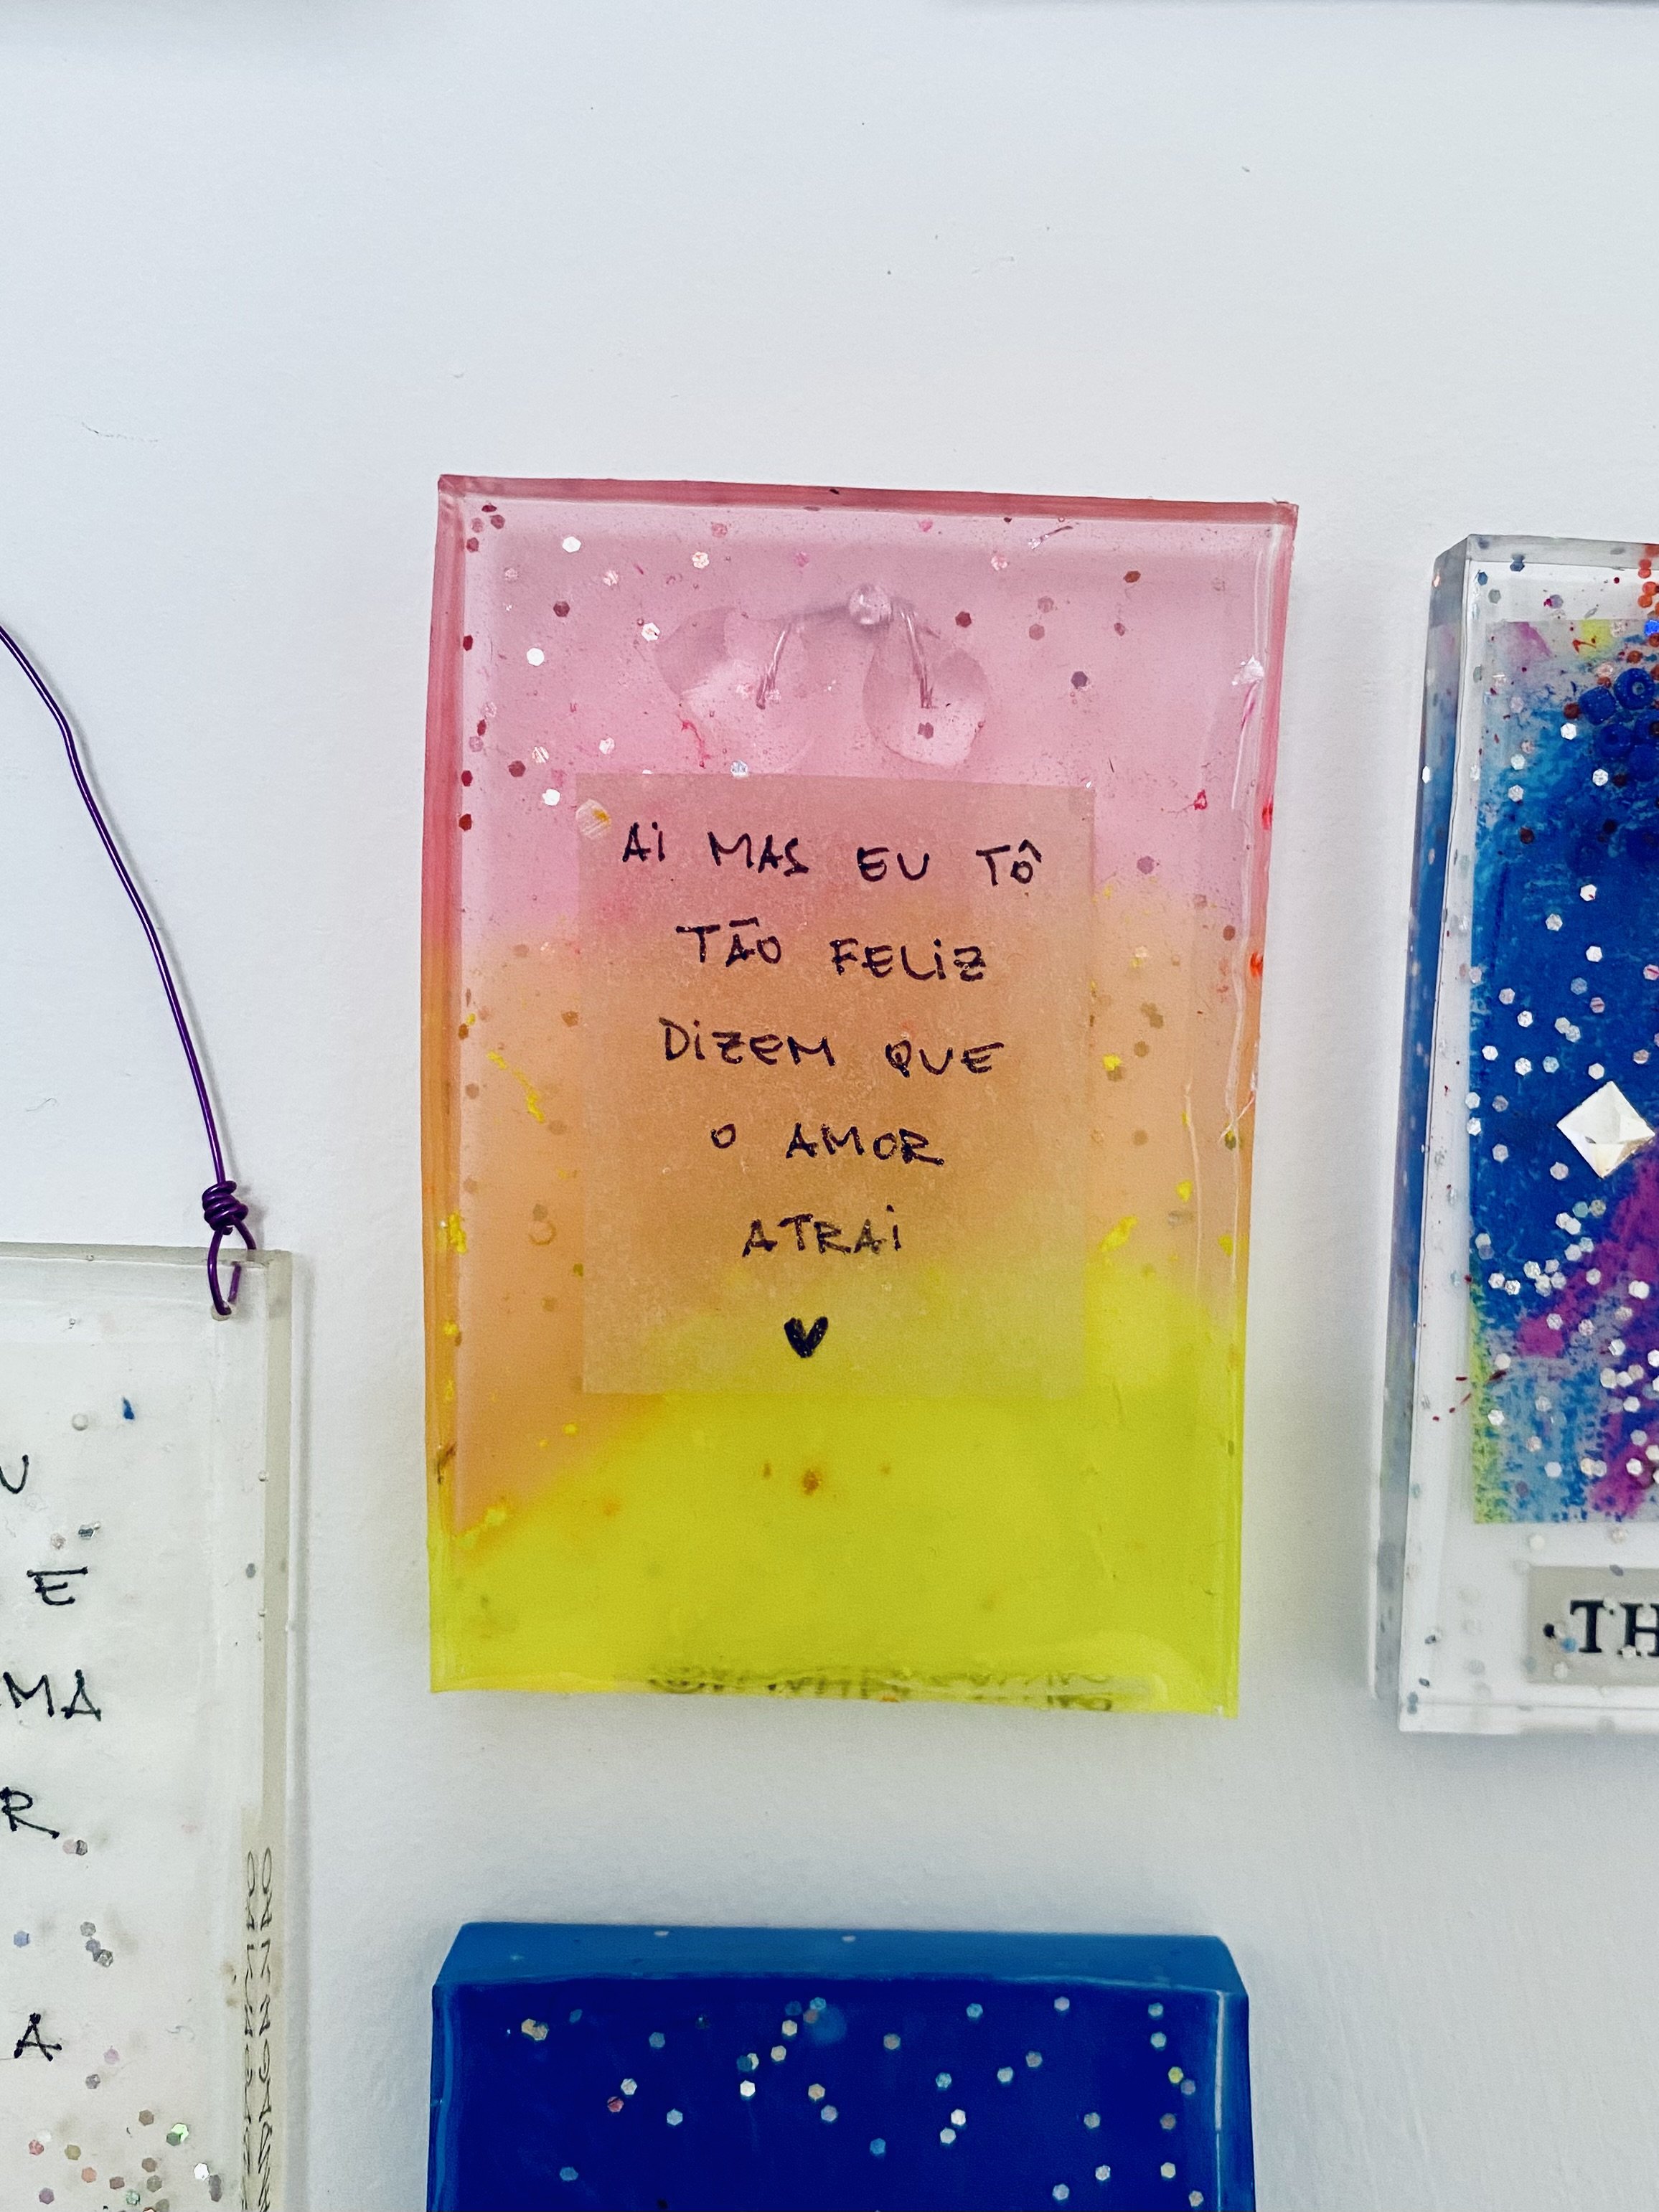 AI MAS EU TÔ
TÃO FELIZ
DIZEM QUE
O AMOR
ATRAI
U
E
MA
R
A
TH